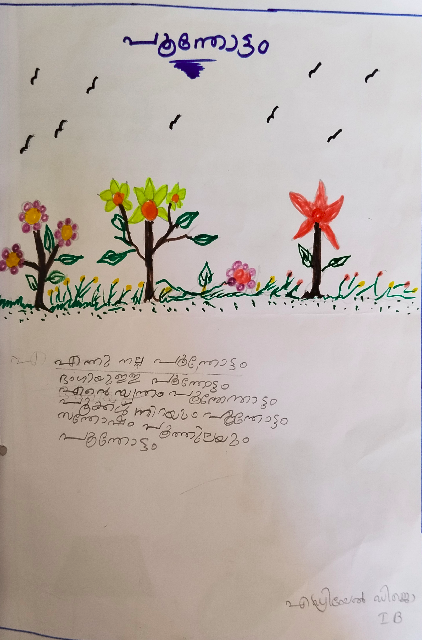 പൂന്തോട്ടം
എന്തു നല്ല പൂന്തോട്ടം
ഭംഗിയുള്ള പൂന്തോട്ടം
എന്റെ സ്വന്തം പൂന്തോട്ടം
പൂക്കൾ നിറയും പൂന്തോട്ടം
സന്തോഷം പൂത്തുലയും
പൂന്തോട്ടം
I B